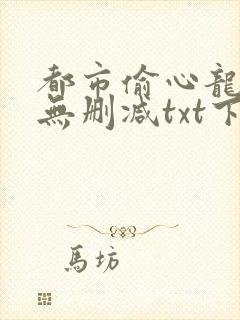 都市偷心龍
無删减txt下
馬坊